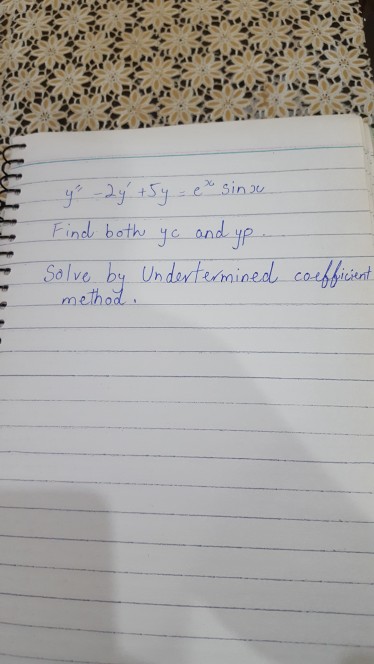 y'' - 2y' + 5y = e^x sin x
Find both yc and yp.
Solve by Undertermined coefficient
method.